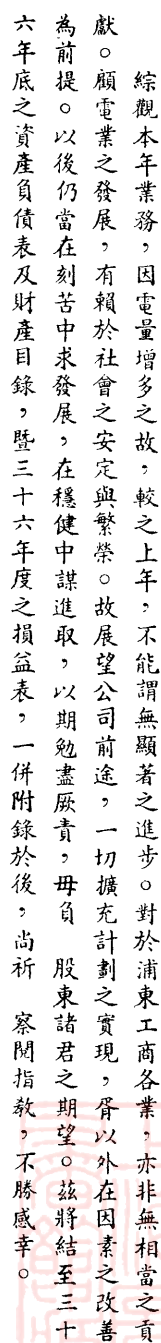 綜觀本年業務，因電量增多之故，較之上年，不能謂無顯著之進步。對於浦東工商各業，亦非無相當之貢
獻。顧電業之發展，有賴於社會之安定與繁榮。故展望公司前途，一切擴充計劃之實現，胥以外在因素之改善
為前提。以後仍當在刻苦中求發展，在穩健中謀進取，以期勉盡厥責，毋負　股東諸君之期望。茲將結至三十
六年底之資產負債表及財產目錄，暨三十六年度之損益表，一併附錄於後，尚祈　察閱指教，不勝感幸。